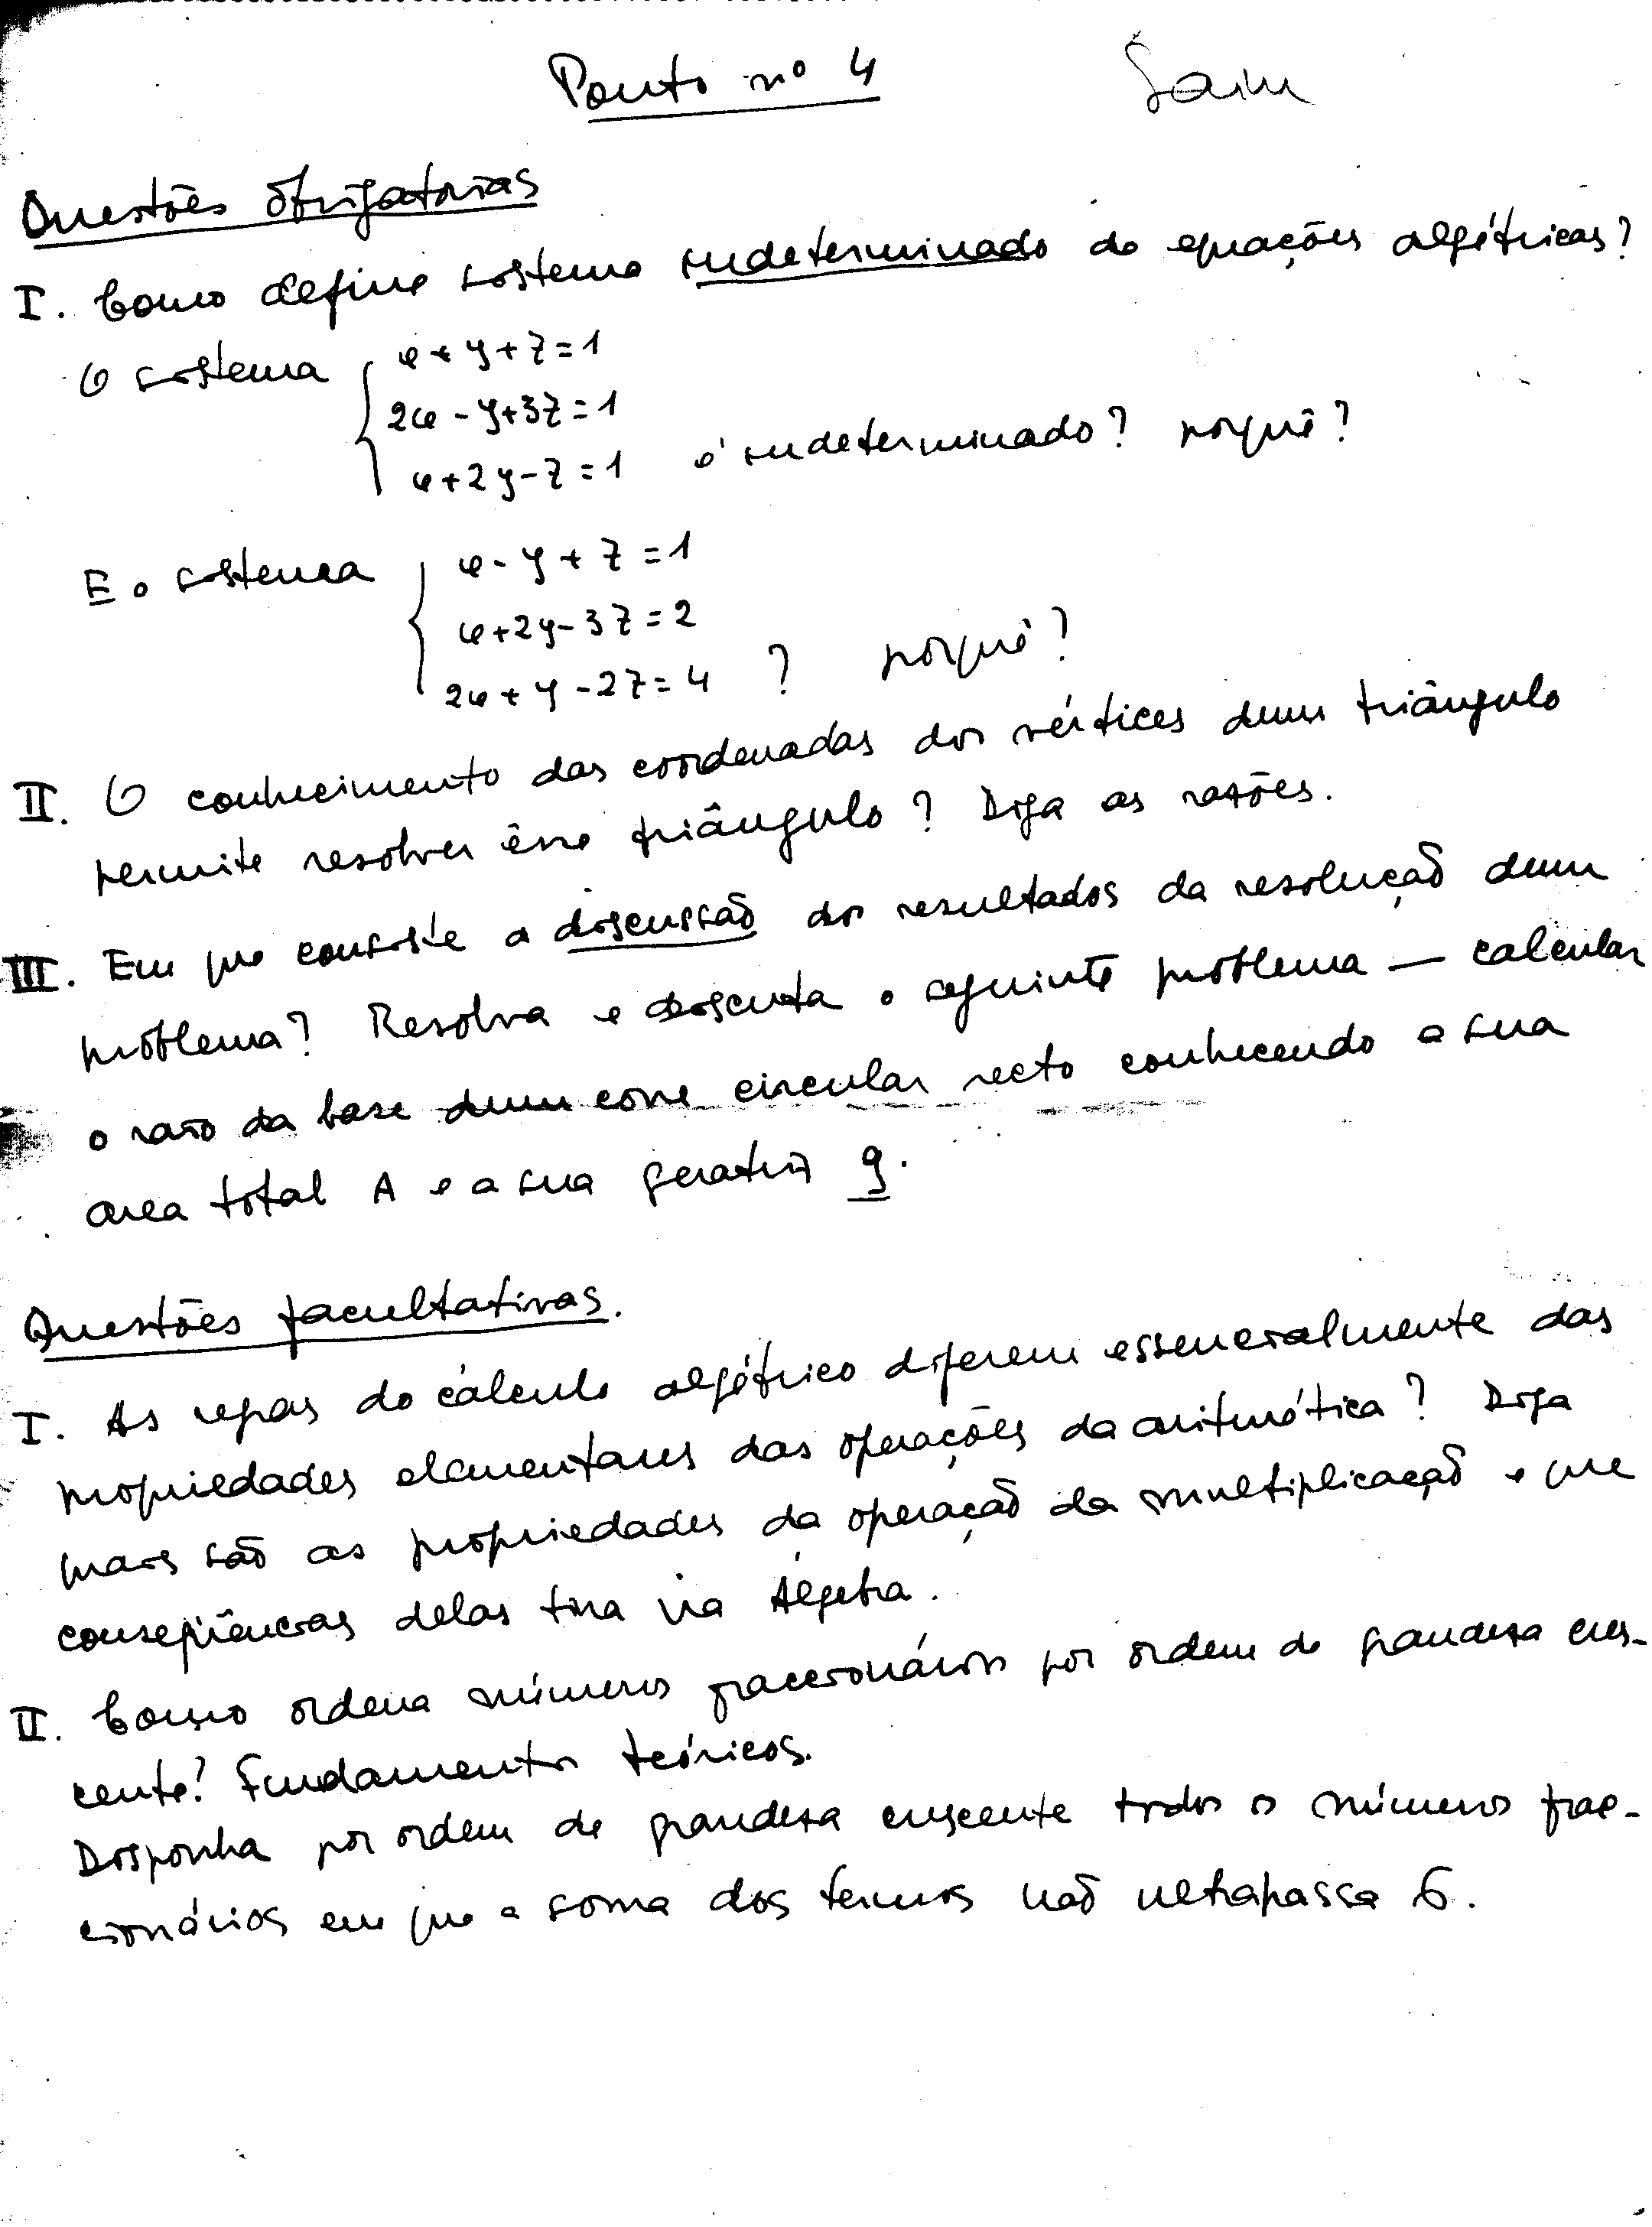 Ponto nº 4 Saiu
Questões obrigatorias
I. Como define sistema indeterminado de equações algébricas?
O sistema { x + y + z = 1
2x - y + 3z = 1
x + 2y - z = 1 é indeterminado? porquê?
E o sistema { x - y + z = 1
x + 2y - 3z = 2
2x + y - 2z = 4 ? porquê?
II. O conhecimento das coordenadas dos vértices dum triângulo
permite resolver êsse triângulo? Diga as razões.
III. Em que consiste a discussão dos resultados da resolução dum
problema? Resolva e discuta o seguinte problema — calcular
o raio da base dum cone circular recto conhecendo a sua
area total A e a sua geratriz g.
Questões facultativas.
I. As regras do cálculo algébrico diferem essencialmente das
propriedades elementares das operações da aritmética? Diga
quais são as propriedades da operação da multiplicação e que
conseqüências delas tira na Álgebra.
II. Como ordena números fraccionários por ordem de grandeza cres-
cente? Fundamentos teóricos.
Disponha por ordem de grandeza crescente todos os números frac-
cionários em que a soma dos termos não ultrapassa 6.